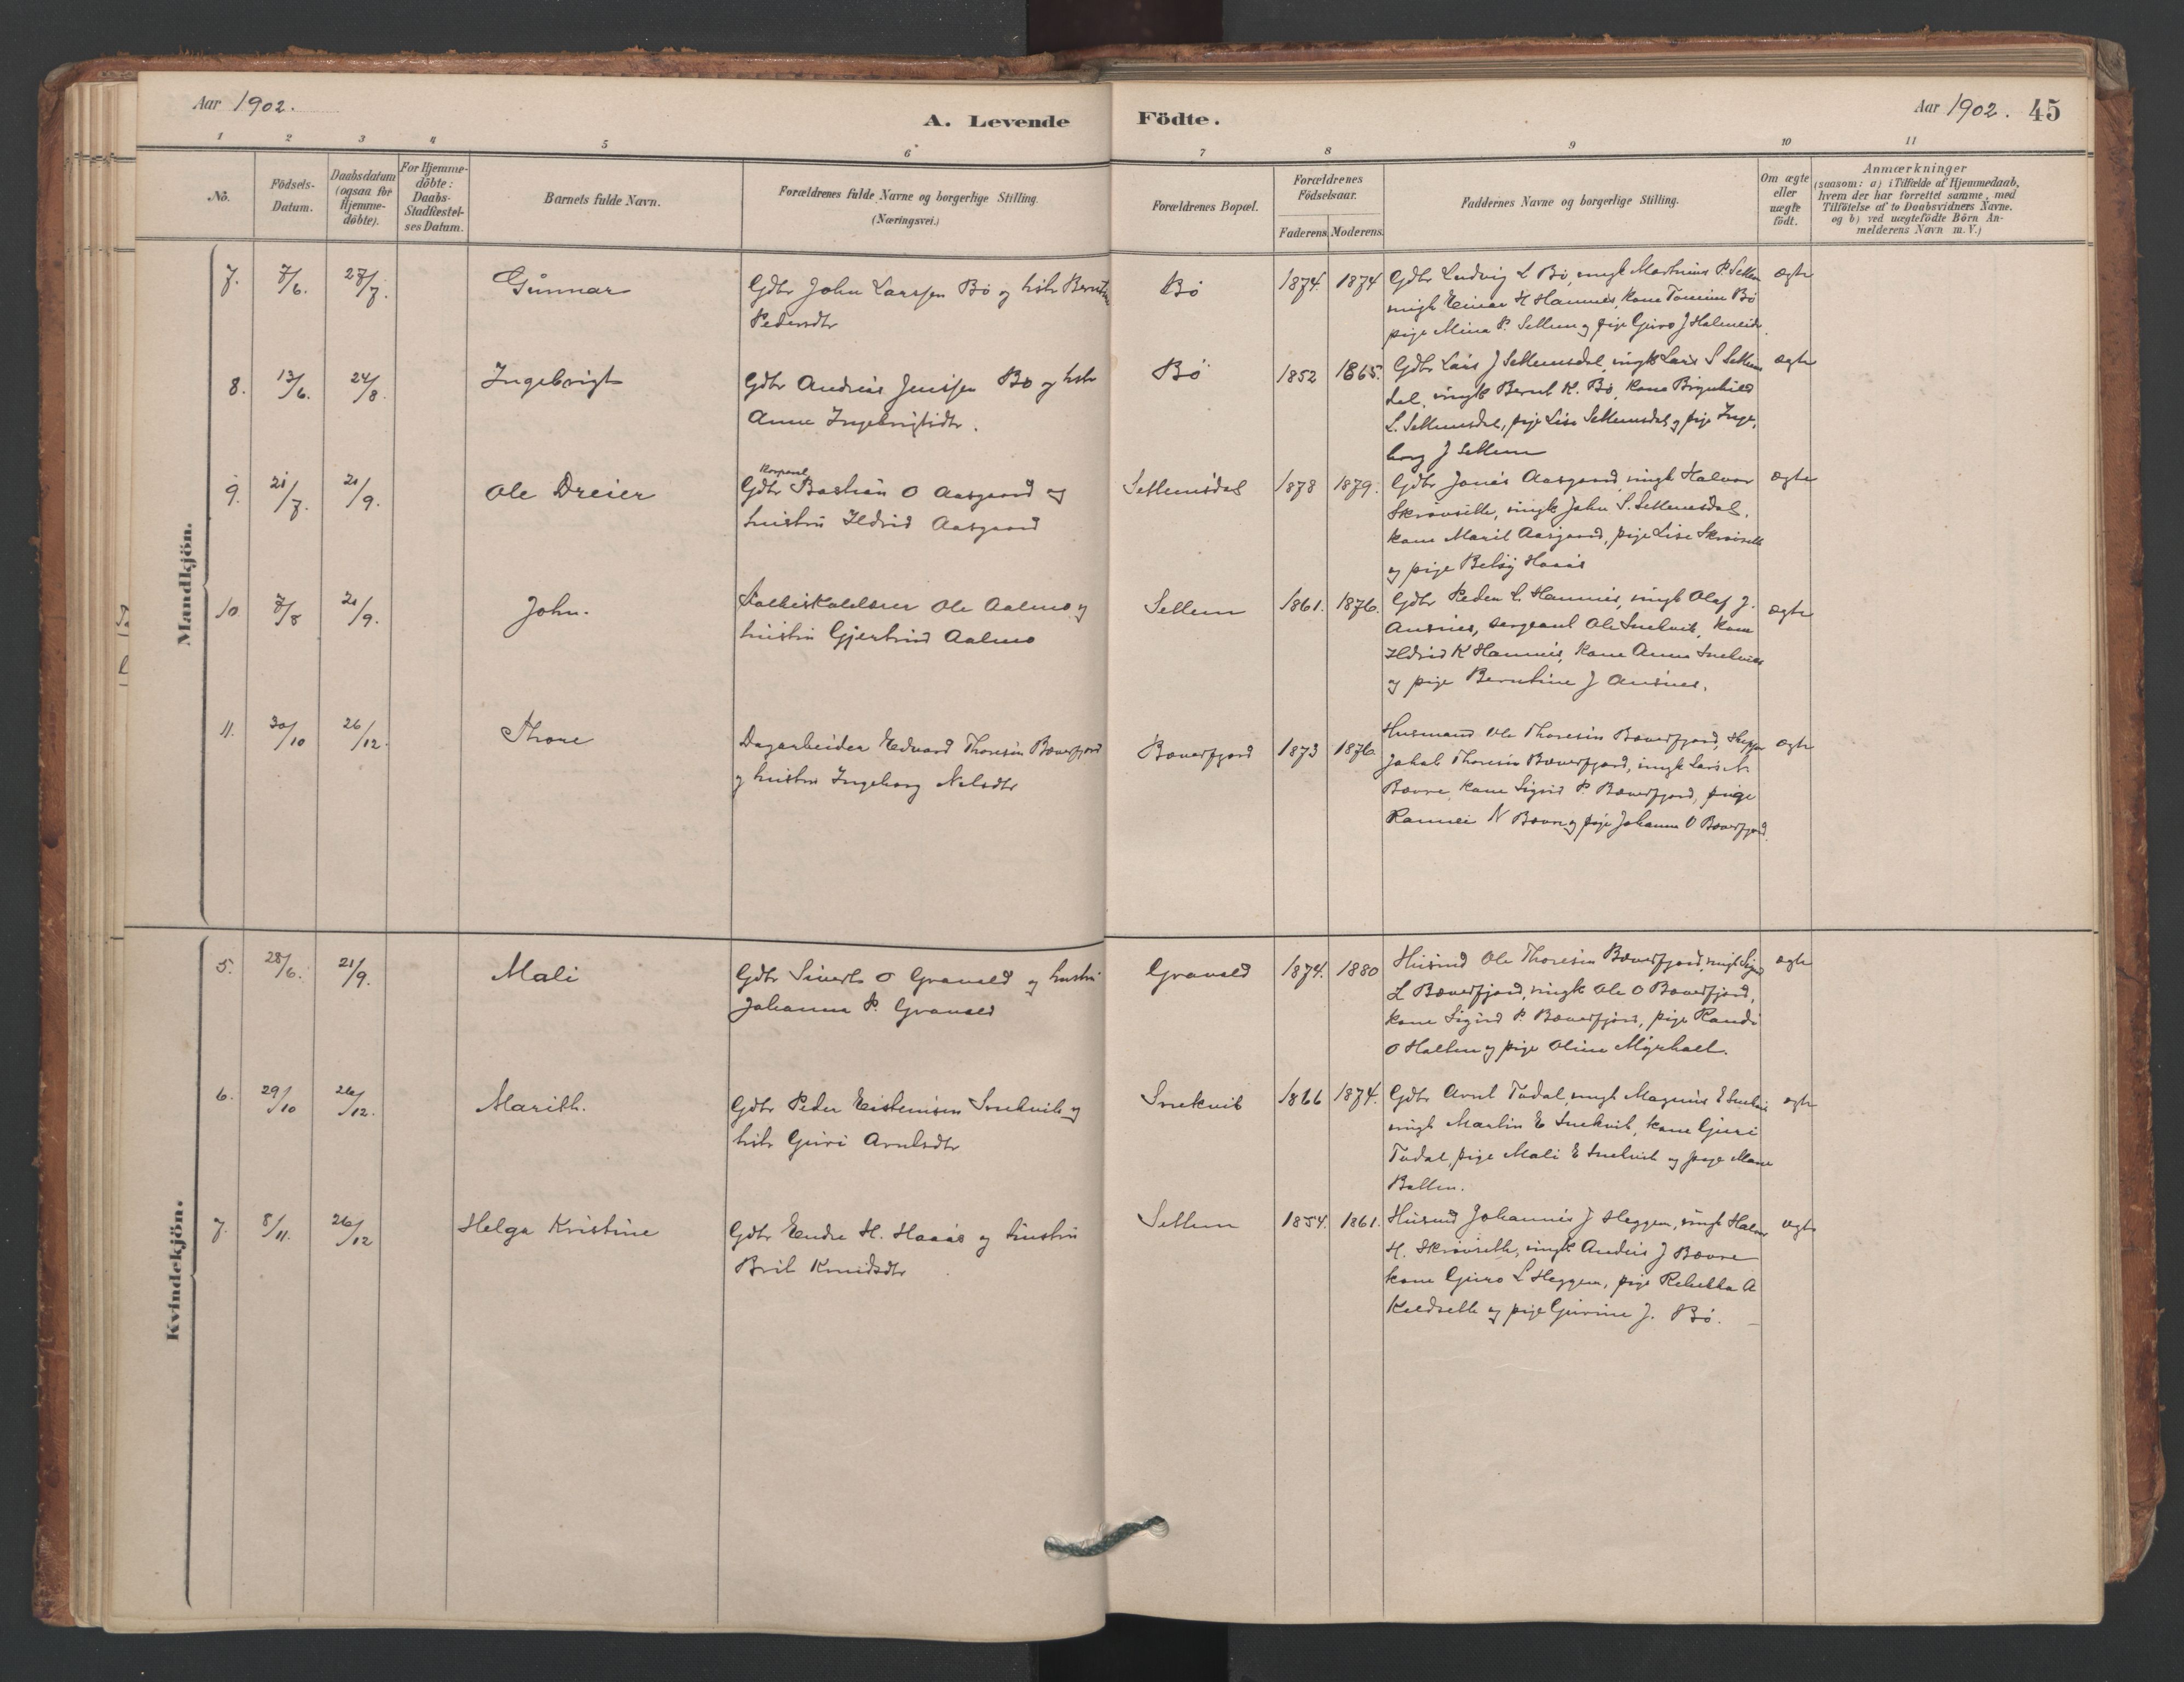 Aar 1902.
A. Levende Födte.
Aar 1902. 45
1 2 3 4 5 6 7 8 9 10 11
No.
Födsels-Datum.
Daabsdatum (ogsaa for Hjemme-döbte).
For Hjemme-döbte: Daabs-Stadfæstel-ses Datum.
Barnets fulde Navn.
Forældrenes fulde Navne og borgerlige Stilling.
(Næringsvei.)
Forældrenes Bopæl.
Forældrenes Födselsaar.
Faderens. Moderens.
Faddernes Navne og borgerlige Stilling.
Om ægte eller uægte födt.
Anmærkninger
(saasom: a) i Tilfælde af Hjemmedaab,
hvem der har forrettet samme, med
Tilföielse af to Daabsvidners Navne.
og b) ved uægtefödte Börn An-
melderens Navn m.V.)
Mandkjön.
7. 7/6. 27/7. Gunnar
Gdbr John Larssen Bö og hstr Berntine
Pedersdtr
Bö 1874. 1874
Gdbr Ludvig L Bö, ungk Martinus P. Settem
ungk Einar H Hamnes, kone Bö
pige Mina P. Settem og pige Guro J Halmeide.
ægte
8. 13/6. 24/8. Ingebrigt
Gdbr Andreas Jenssen Bö og hstr
Anne Ingebrigtsdtr.
Bö 1852 1865.
Gdbr Lars J Settemsdal, ungk Lars S Settems
dal, ungk Bernt K. Bö, kone Brynhild
L. Settemsdal, pige Lise Settemsdal og pige Inge,
borg J Settem
ægte
9. 21/7. 21/9. Ole Dreier
Korporal
Gdbr Bastian O Aasgaard og
hustru Ildrid Aasgaard
Settemsdal 1878 1879.
Gdbr Jonas Aasgaard, ungk Halvor
Skrövseth, ungk John S. Settemsdal.
kone Marit Aasgaard, pige Lise Skrövseth
og pige Betsy Haaås
ægte
10 7/8 21/9. John.
Ole Aalmo og
hustru Gjertrud Aalmo
Settem 1861. 1876.
Gdbr Peder L. Hamnes, ungk Olaf J.
Ansnes, sergeant Ole Snekvik, kone
Ildrid K Hamnes, kone Anne Snekvik
og pige Berntine J Ansnes.
ægte
11. 30/10 26/12. Thore
Dagarbeider Edvard Thoresen Bæverfjord
og hustru Ingeborg Nelsdtr
Bæverfjord 1873 1876
Husmand Ole Thoresen Bæverfjord,
Jakob Thoresen Bæverfjord, ungk Lars N.
Bævre, kone Sigrid P. Bæverfjord, pige
Rannei N Bævre og pige Johanna O Bæverfjord.
ægte
Kvindekjön.
5. 28/6. 21/9. Mali
Gdbr Sivert O Gravald og hustru
Johanna P. Gravald
Gravald 1874. 1880
Husmd Ole Thoresen Bæverfjord, ungk
L Bæverfjord, ungk Ole O Bæverfjord,
kone Sigrid P. Bæverfjord, pige Randi
O Halten og pige Oline Myrholt.
ægte
6. 29/10 26/12. Marith.
Gdbr Peder Eistensen Snekvik og
hstr Guri Arntsdtr
Snekvik 1866 1874.
Gdbr Arnt Tødal, ungk Magnus E Snekvik
ungk Martin E Snekvik, kone Guri
Tødal, pige Mali E Snekvik og pige
Botten.
ægte
7. 8/11. 26/12 Helga Kristine
Gdbr Endre H. Haaås og hustru
Brit Knudsdtr
Settem 1854. 1861.
Husmd Johannes J Heggem, ungk Halvor
H. Skrövseth, ungk Anders J Bævre
kone Guro L Heggem, pige Rebekka A
Kvedseth og pige Gurine J. Bö.
ægte